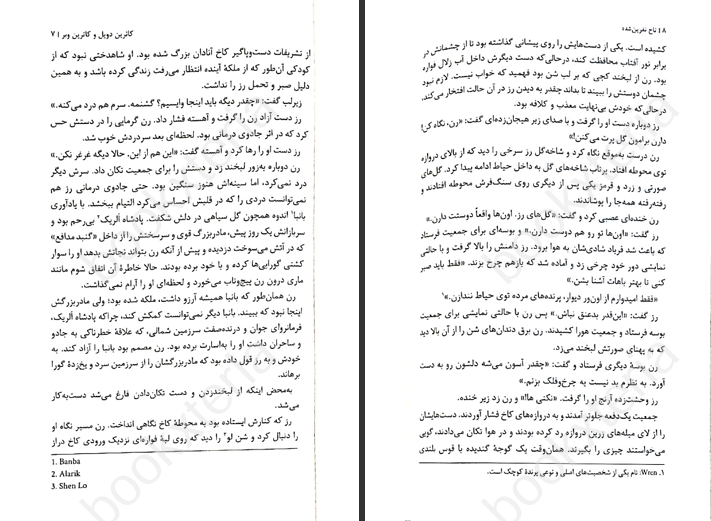 ۱۸ تاج نفرین‌شده
کشیده است. یکی از دست‌هایش را روی پیشانی گذاشته بود تا از چشمانش در
برابر نور آفتاب محافظت کند، درحالی‌که دست دیگرش داخل آب زلال فواره
بود. رن از لبخند کجی که بر لب شن بود فهمید که خواب نیست. لازم نبود
چشمان دوستش را ببیند تا بداند چقدر به دیدن رز در آن حالت افتخار می‌کند.
درحالی‌که خودش بی‌نهایت معذب و کلافه بود.
رز دوباره دست او را گرفت و با صدای زیر هیجان‌زده‌ای گفت: «رن، نگاه کن!
دارن برامون گل پرت می‌کنن!»
رن درست به‌موقع نگاه کرد و شاخه‌گل رز سرخی را دید که از بالای دروازه
توی محوطه افتاد. پرتاب شاخه‌های گل به داخل حیاط ادامه پیدا کرد. گل‌های
صورتی و زرد و قرمز یکی پس از دیگری روی سنگ‌فرش محوطه افتادند و
رفته‌رفته همه‌جا را پوشاندند.
رن خنده‌ای عصبی کرد و گفت: «گل‌های رز. اون‌ها واقعاً دوستت دارن.»
رز گفت: «اون‌ها تو رو هم دوست دارن.» و بوسه‌ای برای جمعیت فرستاد
که باعث شد فریاد شادی‌شان به هوا برود. رز دامنش را بالا گرفت و با حالتی
نمایشی دور خود چرخی زد و آماده شد که بازهم چرخ بزند. «فقط باید صبر
کنی تا بهتر باهات آشنا بشن.»
«فقط امیدوارم از اون‌ور دیوار، پرنده‌های مرده توی حیاط نندازن.»¹
رز گفت: «این‌قدر بدعنق نباش.» پس رن با حالتی نمایشی برای جمعیت
بوسه فرستاد و جمعیت هورا کشیدند. رن برق دندان‌های شن را از آن بالا دید
که به پهنای صورتش لبخند می‌زد.
رن بوسهٔ دیگری فرستاد و گفت: «چقدر آسون می‌شه دلشون رو به دست
آورد. به نظرم بد نیست یه چرخ‌وفلک بزنم.»
رز وحشت‌زده آرنج او را گرفت. «نکنی ها!» و رن زد زیر خنده.
جمعیت یک‌دفعه جلوتر آمدند و به دروازه‌های کاخ فشار آوردند. دست‌هایشان
را از لای میله‌های زرین دروازه رد کرده بودند و در هوا تکان می‌دادند، گویی
می‌خواستند چیزی را بگیرند. همان‌وقت یک گوجهٔ گندیده با قوس بلندی
۱. Wren: نام یکی از شخصیت‌های اصلی و نوعی پرندهٔ کوچک است.
کاترین دویل و کاترین وبر ۷۱
از تشریفات دست‌وپاگیر کاخ آنادان بزرگ شده بود. او شاهدختی نبود که از
کودکی آن‌طور که از ملکهٔ آینده انتظار می‌رفت زندگی کرده باشد و به همین
دلیل صبر و تحمل رز را نداشت.
زیرلب گفت: «چقدر دیگه باید اینجا وایسیم؟ گشنمه. سرم هم درد می‌کنه.»
رز دست آزاد رن را گرفت و آهسته فشار داد. رن گرمایی را در دستش حس
کرد که در اثر جادوی درمانی بود. لحظه‌ای بعد سردردش خوب شد.
رز دست او را رها کرد و آهسته گفت: «این هم از این. حالا دیگه غرغر نکن.»
رن دوباره به‌زور لبخند زد و دستش را برای جمعیت تکان داد. سرش دیگر
درد نمی‌کرد، اما سینه‌اش هنوز سنگین بود. حتی جادوی درمانی رز هم
نمی‌توانست دردی را که در قلبش احساس می‌کرد التیام ببخشد. با یادآوری
بانبا¹ اندوه همچون گل سیاهی در دلش شکفت. پادشاه الریک² بی‌رحم بود و
سربازانش یک روز پیش، مادربزرگ قوی و سرسختش را از داخل «گنبد مدافع»
که در آتش می‌سوخت دزدیده و پیش از آنکه رن بتواند نجاتش بدهد او را سوار
کشتی گورایی‌ها کرده و با خود برده بودند. حالا خاطرهٔ آن اتفاق شوم مانند
ماری درون رن پیچ‌وتاب می‌خورد و لحظه‌ای او را آرام نمی‌گذاشت.
رن همان‌طور که بانبا همیشه آرزو داشت، ملکه شده بود؛ ولی مادربزرگش
اینجا نبود که ببیند. بانبا دیگر نمی‌توانست کمکش کند، چراکه پادشاه الریک،
فرمانروای جوان و درنده‌صفت سرزمین شمالی، که علاقهٔ خطرناکی به جادو
و ساحران داشت او را به‌اسارت برده بود. رن مصمم بود بانبا را آزاد کند. به
خودش و به رز قول داده بود که مادربزرگشان را از سرزمین سرد و یخ‌زدهٔ گورا
برهاند.
به‌محض اینکه از لبخندزدن و دست تکان‌دادن فارغ می‌شد دست‌به‌کار
می‌شد.
رز که کنارش ایستاده بود به محوطهٔ کاخ نگاهی انداخت. رن مسیر نگاه او
را دنبال کرد و شن لو³ را دید که روی لبهٔ فواره‌ای نزدیک ورودی کاخ دراز
1. Banba
2. Alarik
3. Shen Lo